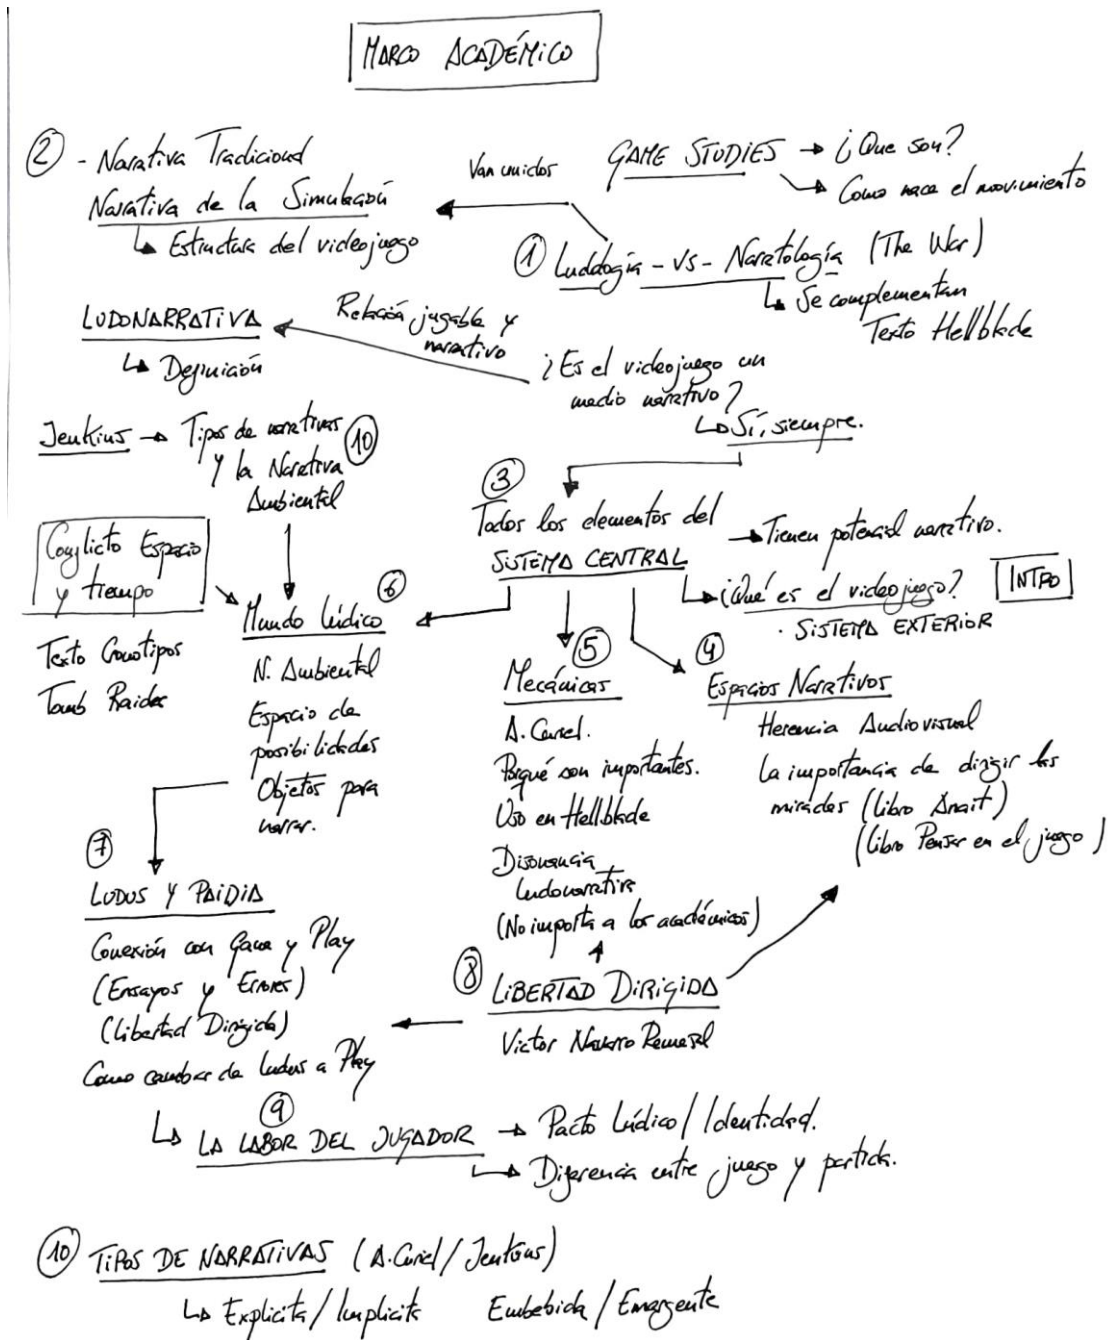 MARCO ACADÉMICO
② - Narrativa Tradicional
Narrativa de la Simulación
↳ Estructura del videojuego
Van unidos
GAME STUDIES → ¿Que son?
→ Como nace el movimiento
① Ludología - vs - Narratología (The War)
↳ Se complementan
Texto Hellblade
LUDONARRATIVA
↳ Definición
Relación jugable y
narrativo
¿Es el videojuego un
medio narrativo?
↳ Sí, siempre.
Jenkins → Tipos de narrativas ⑩
y la Narrativa
Ambiental
Conflicto Espacio
y tiempo
Texto Cronotipos
Tomb Raider
③
Todos los elementos del
SISTEMA CENTRAL
→ Tienen potencial narrativo.
↳ ¿Qué es el videojuego? INTRO
· SISTEMA EXTERIOR
Mundo lúdico ⑥
N. Ambiental
Espacio de
posibilidades
Objetos para
narrar.
⑤
Mecánicas
A. Curiel.
Porqué son importantes.
Uso en Hellblade
Disonancia
Ludonarrativa
(No importa a los académicos)
④
Espacios Narrativos
Herencia Audiovisual
La importancia de dirigir las
miradas (Libro Anait)
(Libro Pensar en el juego)
⑦
LUDUS Y PAIDIA
Conexión con Game y Play
(Ensayos y Errores)
(Libertad Dirigida)
Como cambiar de Ludus a Play
⑧ LIBERTAD DIRIGIDA
Victor Navarro Remesal
⑨
↳ LA LABOR DEL JUGADOR → Pacto Lúdico / Identidad.
↳ Diferencia entre juego y partida.
⑩ TIPOS DE NARRATIVAS (A. Curiel / Jenkins)
↳ Explícita / Implícita Embebida / Emergente